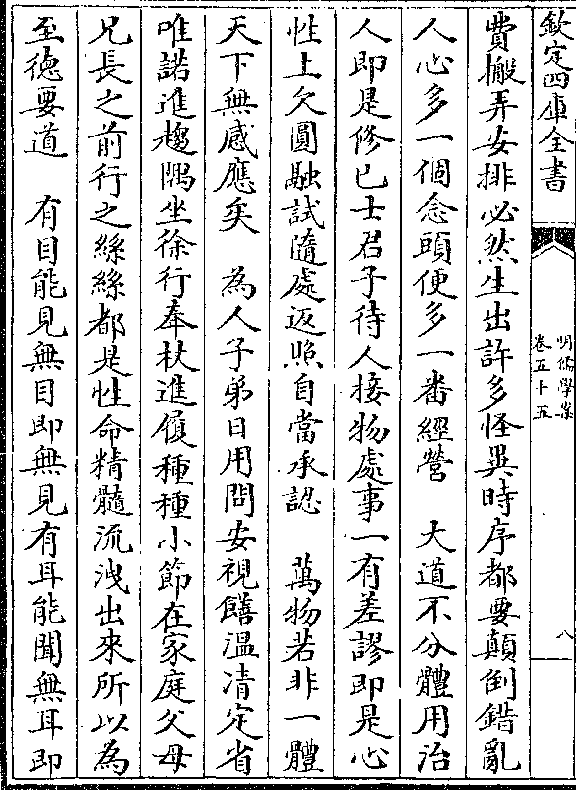 欽定四庫全書
明儒學案
卷五十五
八
費搬弄安排必然生出許多怪異時序都要顛倒錯亂
人心多一個念頭便多一番經營　大道不分體用治
人即是修已士君子待人接物處事一有差謬即是心
性上欠圓融試隨處返照自當承認　萬物若非一體
天下無感應矣　為人子弟日用問安視饍溫凊定省
唯諾進趨隅坐徐行奉杖進履種種小節在家庭父母
兄長之前行之絲絲都是性命精髓流洩出來所以為
至徳要道　有目能見無目即無見有耳能聞無耳即